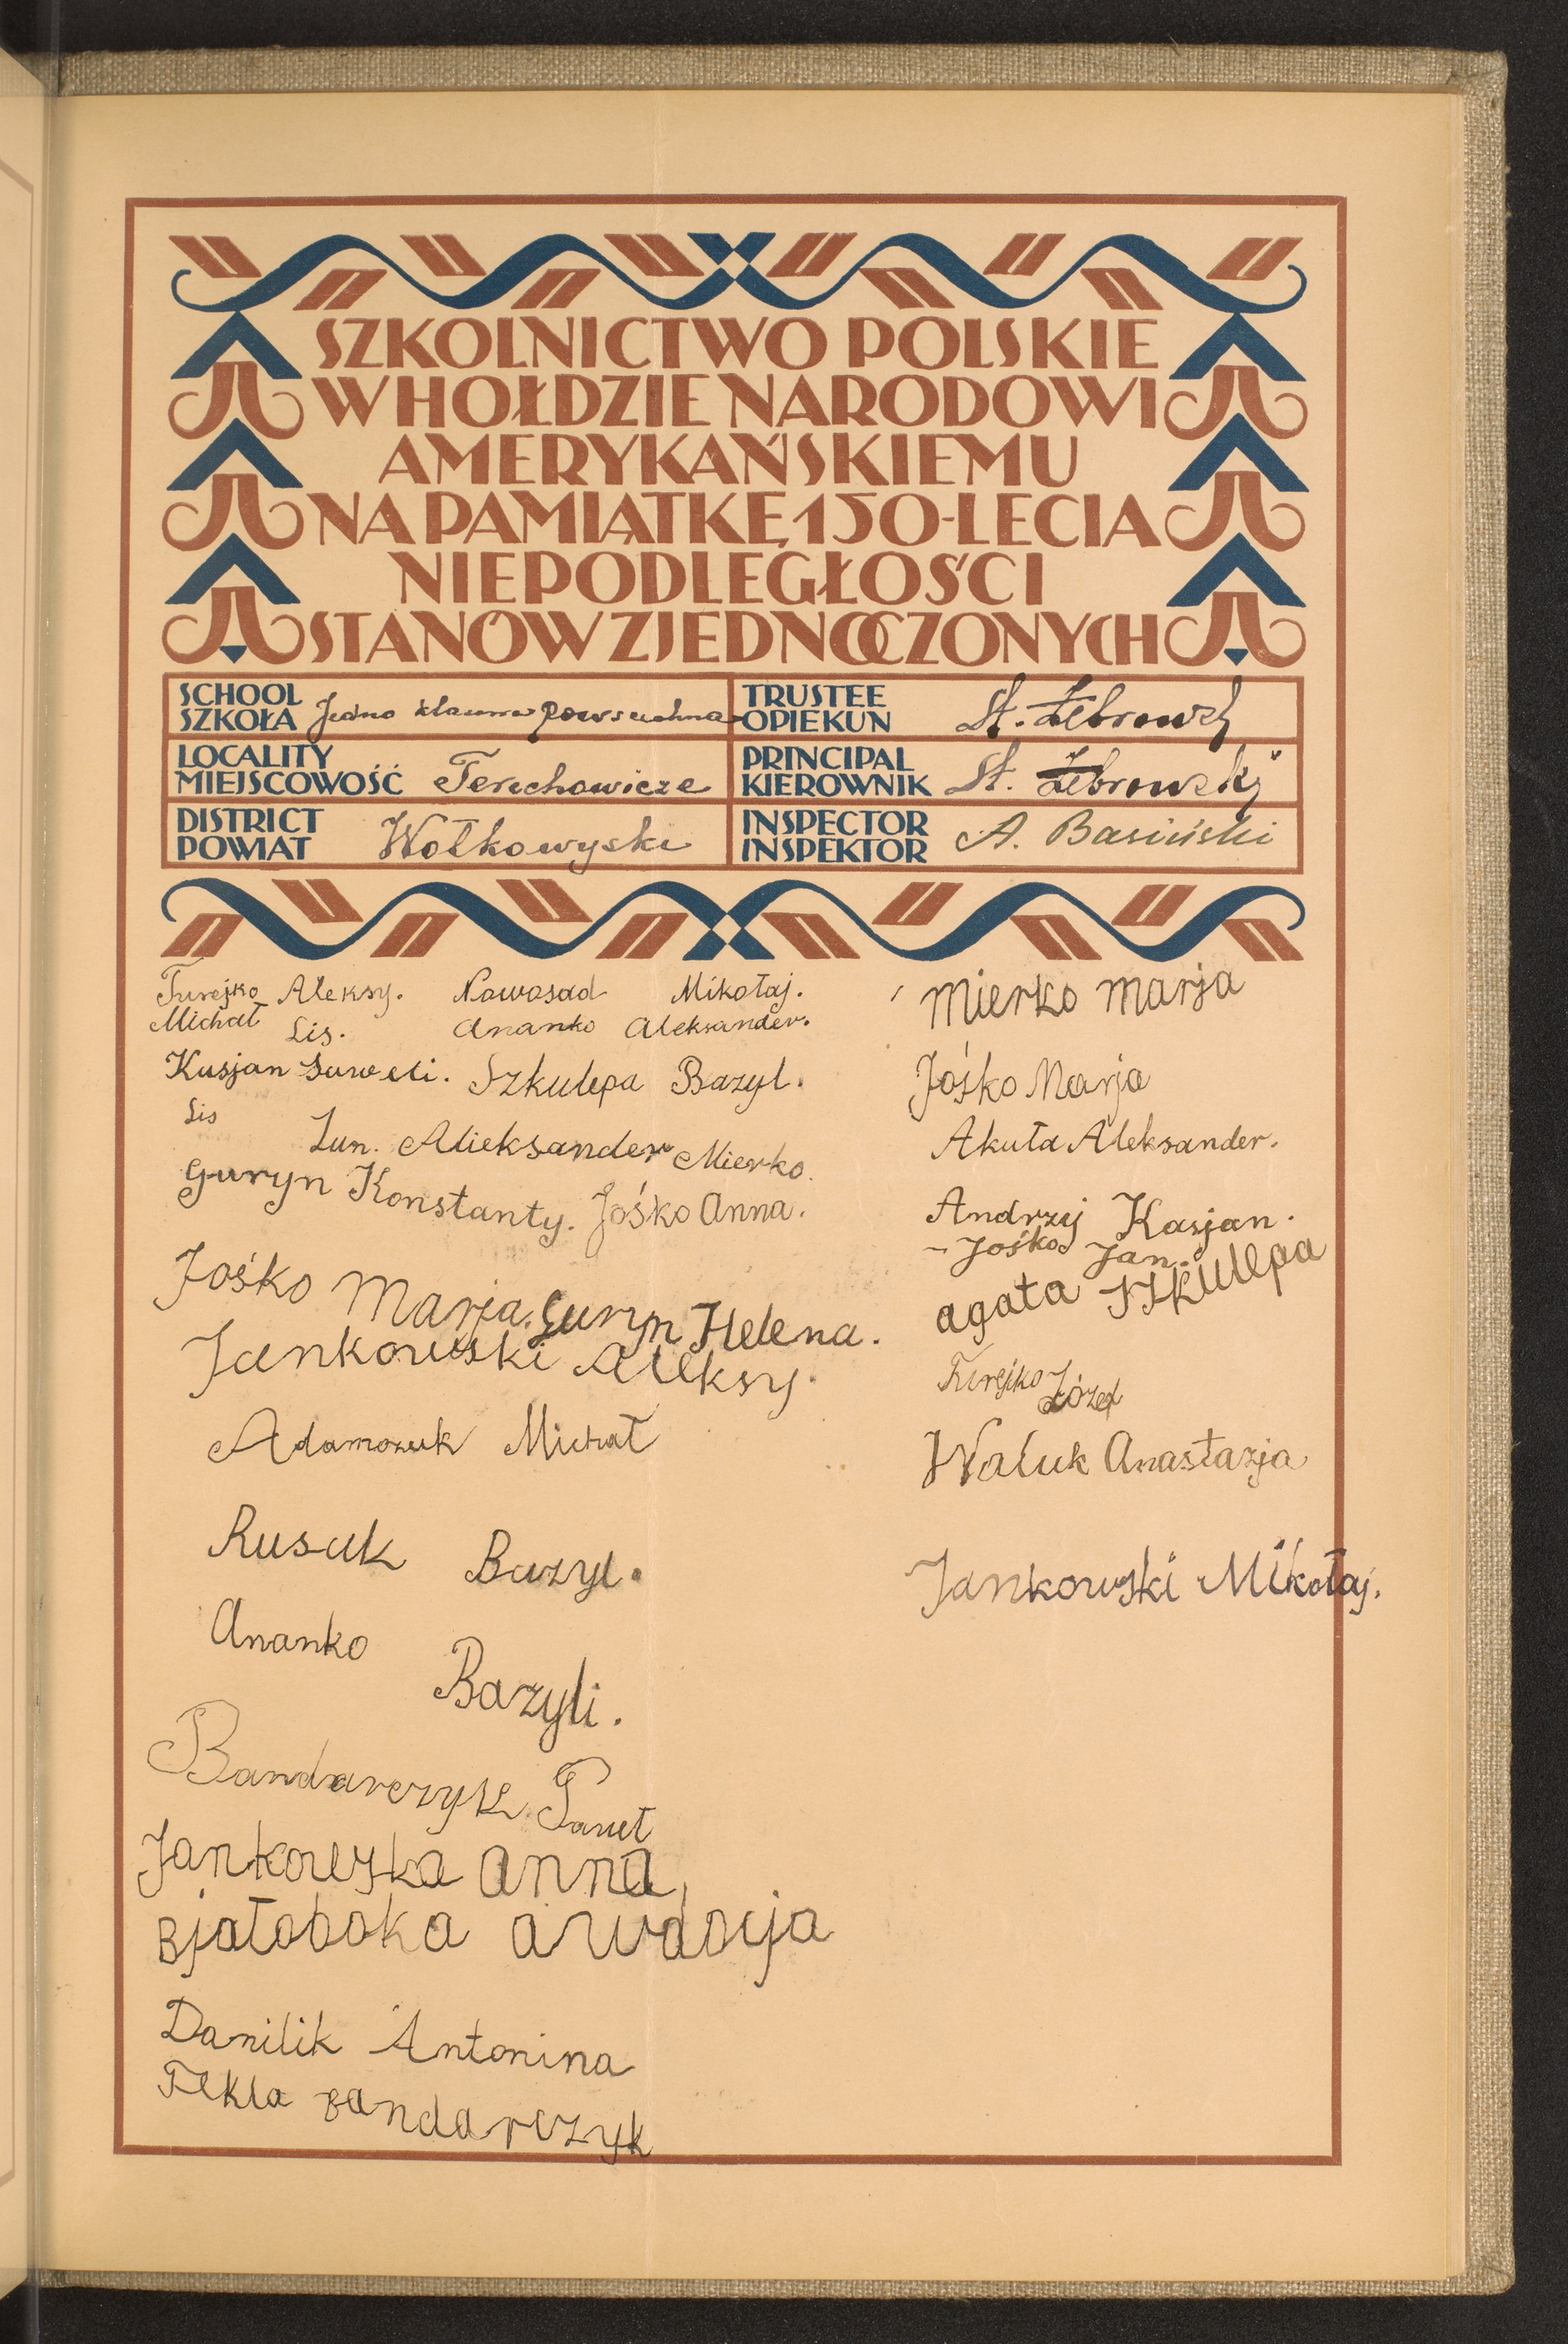 SZKOLNICTWO POLSKIE
W HOŁDZIE NARODOWI
AMERYKAŃSKIEMU
NA PAMIĄTKĘ 150-LECIA
NIEPODLEGŁOŚCI
STANÓW ZJEDNOCZONYCH
SCHOOL
SZKOŁA Jedno klasowa powszechna
TRUSTEE
OPIEKUN St. Żebrowski
LOCALITY
MIEJSCOWOŚĆ Terechowicze
PRINCIPAL
KIEROWNIK St. Żebrowski
DISTRICT
POWIAT Wołkowyski
INSPECTOR
INSPEKTOR A. Basiński
Turejko Aleksy. Nowosad Mikołaj.
Michał Lis. Ananko Aleksander.
Kusjan Saweli. Szkulepa Bazyl.
Lis Lun. Alieksander Mierko.
Guryn Konstanty. Jośko Anna.
Jośko Marja. Guryn Helena.
Jankowski Aleksy
Adamczuk Michał
Rusak Bazyl.
Ananko
Bazyli.
Bandarczyk Paweł
Jankowska anna,
Bjałoboka awdocja
Danilik Antonina
Tekla Bandarczyk
Mierko Marja
Jośko Marja
Akuła Aleksander.
Andrzej Kasjan.
Jośko Jan.
agata szkulepa
Turejko Józef
Waluk Anastazja
Jankowski Mikołaj.